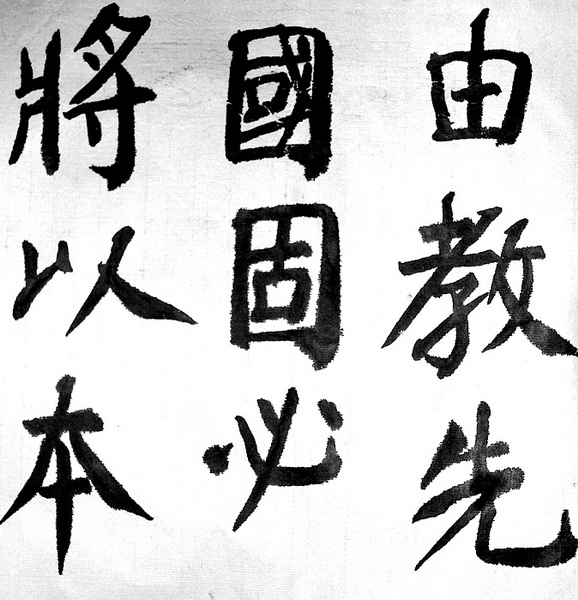 由教先
國固必
將以本